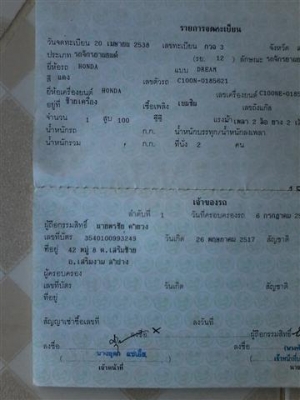 รายการจดทะเบียน
วันจดทะเบียน 20 เมษายน 2538 เลขทะเบียน กวจ 3 จังหวัด
ประเภท รถจักรยานยนต์ (รย. 12 ) ลักษณะ รถจักรยาน
ยี่ห้อรถ HONDA แบบ DREAM
สี แดง เลขตัวรถ C100N-0185621
ยี่ห้อเครื่องยนต์ HONDA เลขเครื่องยนต์ C100NE-0185
อยู่ที่ ซ้ายเครื่อง เชื้อเพลิง เบนซิน เลขถังแก๊ส
จำนวน 1 สูบ 100 ซีซี แรงม้า เพลา 2 ล้อ ยาง 2
น้ำหนักรถ ก.ก. น้ำหนักบรรทุก/น้ำหนักลงเพลา
น้ำหนักรวม ก.ก. ที่นั่ง 2 คน
เจ้าของรถ
ลำดับที่ 1 วันที่ครอบครองรถ 6 กรกฎาคม 2
ผู้ถือกรรมสิทธิ์
เลขที่บัตร วันเกิด 26 พฤษภาคม 2517 สัญชาติ
ที่อยู่ 42 หมู่ 8 ต.เสริมซ้าย
อ.เสริมงาม ลำปาง
ผู้ครอบครอง
เลขที่บัตร วันเกิด สัญชาติ
ที่อยู่
สัญญาเช่าซื้อเลขที่ ลงวันที่
ผู้ถือกรรมสิทธิ์
ลงชื่อ ลงชื่อ
เจ้าหน้าที่